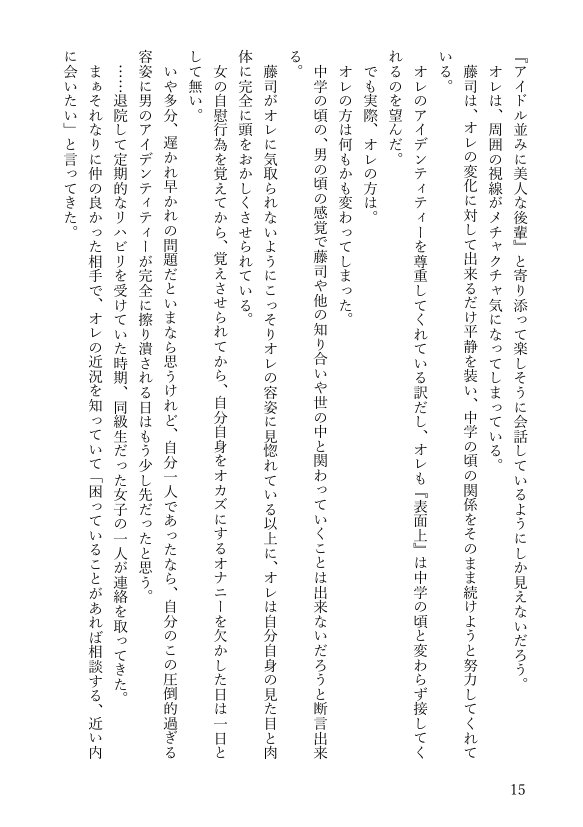 『アイドル並みに美人な後輩』と寄り添って楽しそうに会話しているようにしか見えないだろう。
オレは、周囲の視線がメチャクチャ気になってしまっている。
藤司は、オレの変化に対して出来るだけ平静を装い、中学の頃の関係をそのまま続けようと努力してくれて
いる。
オレのアイデンティティーを尊重してくれている訳だし、オレも『表面上』は中学の頃と変わらず接してく
れるのを望んだ。
でも実際、オレの方は。
オレの方は何もかも変わってしまった。
中学の頃の、男の頃の感覚で藤司や他の知り合いや世の中と関わっていくことは出来ないだろうと断言出来
る。
藤司がオレに気取られないようにこっそりオレの容姿に見惚れている以上に、オレは自分自身の見た目と肉
体に完全に頭をおかしくさせられている。
女の自慰行為を覚えてから、覚えさせられてから、自分自身をオカズにするオナニーを欠かした日は一日と
して無い。
いや多分、遅かれ早かれの問題だといまなら思うけれど、自分一人であったなら、自分のこの圧倒的過ぎる
容姿に男のアイデンティティーが完全に擦り潰される日はもう少し先だったと思う。
……退院して定期的なリハビリを受けていた時期、同級生だった女子の一人が連絡を取ってきた。
まぁそれなりに仲の良かった相手で、オレの近況を知っていて「困っていることがあれば相談する、近い内
に会いたい」と言ってきた。
15